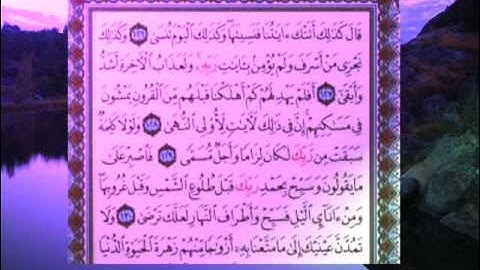 قَالَ كَذَٰلِكَ أَتَتْكَ ءَايَٰتُنَا فَنَسِيتَهَا وَكَذَٰلِكَ ٱلْيَوْمَ تُنسَىٰ ١٢٦ وَكَذَٰلِكَ
نَجْزِى مَنْ أَسْرَفَ وَلَمْ يُؤْمِنۢ بِـَٔايَٰتِ رَبِّهِۦ وَلَعَذَابُ ٱلْءَاخِرَةِ أَشَدُّ
وَأَبْقَىٰٓ ١٢٧ أَفَلَمْ يَهْدِ لَهُمْ كَمْ أَهْلَكْنَا قَبْلَهُم مِّنَ ٱلْقُرُونِ يَمْشُونَ
فِى مَسَٰكِنِهِمْ إِنَّ فِى ذَٰلِكَ لَءَايَٰتٍ لِّأُو۟لِى ٱلنُّهَىٰ ١٢٨ وَلَوْلَا كَلِمَةٌ
سَبَقَتْ مِن رَّبِّكَ لَكَانَ لِزَامًا وَأَجَلٌ مُّسَمًّى ١٢٩ فَٱصْبِرْ عَلَىٰ
مَا يَقُولُونَ وَسَبِّحْ بِحَمْدِ رَبِّكَ قَبْلَ طُلُوعِ ٱلشَّمْسِ وَقَبْلَ غُرُوبِهَا
وَمِنْ ءَانَآئِ ٱلَّيْلِ فَسَبِّحْ وَأَطْرَافَ ٱلنَّهَارِ لَعَلَّكَ تَرْضَىٰ ١٣٠ وَلَا
تَمُدَّنَّ عَيْنَيْكَ إِلَىٰ مَا مَتَّعْنَا بِهِۦٓ أَزْوَٰجًا مِّنْهُمْ زَهْرَةَ ٱلْحَيَوٰةِ ٱلدُّنْيَا